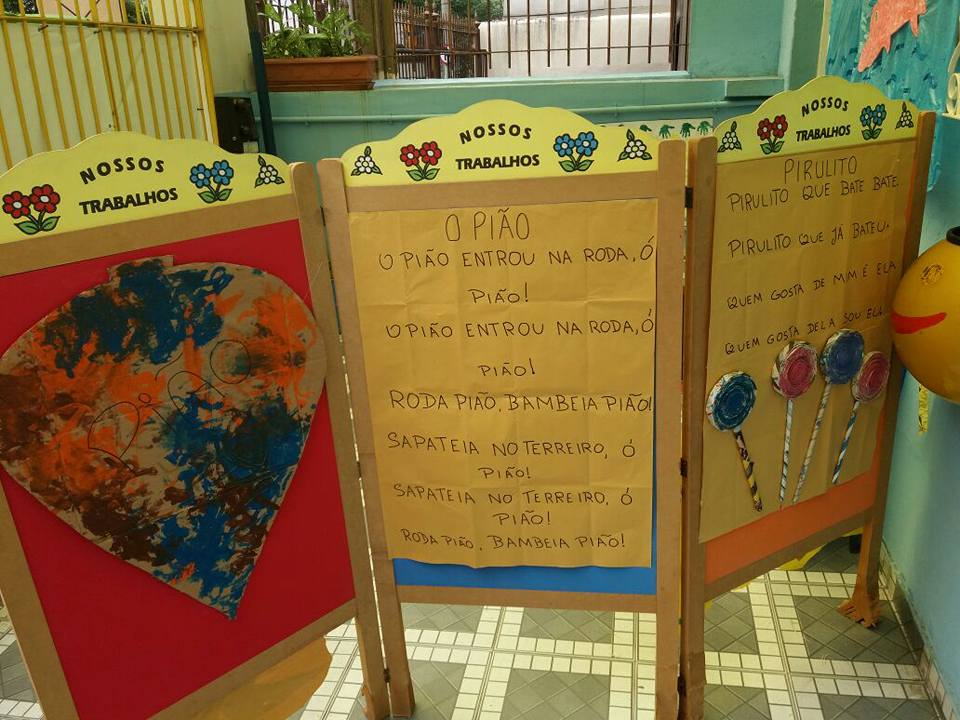 NOSSOS
TRABALHOS
PIÃO
NOSSOS
TRABALHOS
O PIÃO
O PIÃO ENTROU NA RODA, Ó
PIÃO!
O PIÃO ENTROU NA RODA, Ó
PIÃO!
RODA PIÃO, BAMBEIA PIÃO!
SAPATEIA NO TERREIRO, Ó
PIÃO!
SAPATEIA NO TERREIRO, Ó
PIÃO!
RODA PIÃO, BAMBEIA PIÃO!
NOSSOS
TRABALHOS
PIRULITO
PIRULITO QUE BATE BATE.
PIRULITO QUE JÁ BATEU.
QUEM GOSTA DE MIM É ELA
QUEM GOSTA DELA SOU EU.